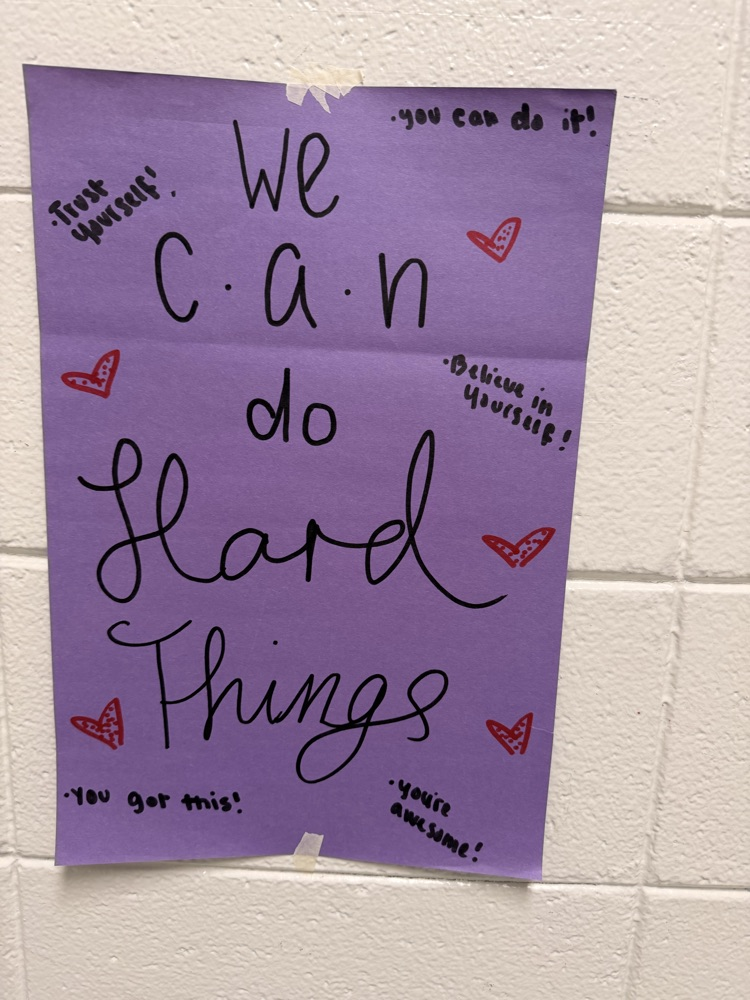 ·you can do it!
We
·Trust
yourself!
C·a·n
·Believe in
yourself!
do
Hard
Things
·You got this!
·you're
awesome!